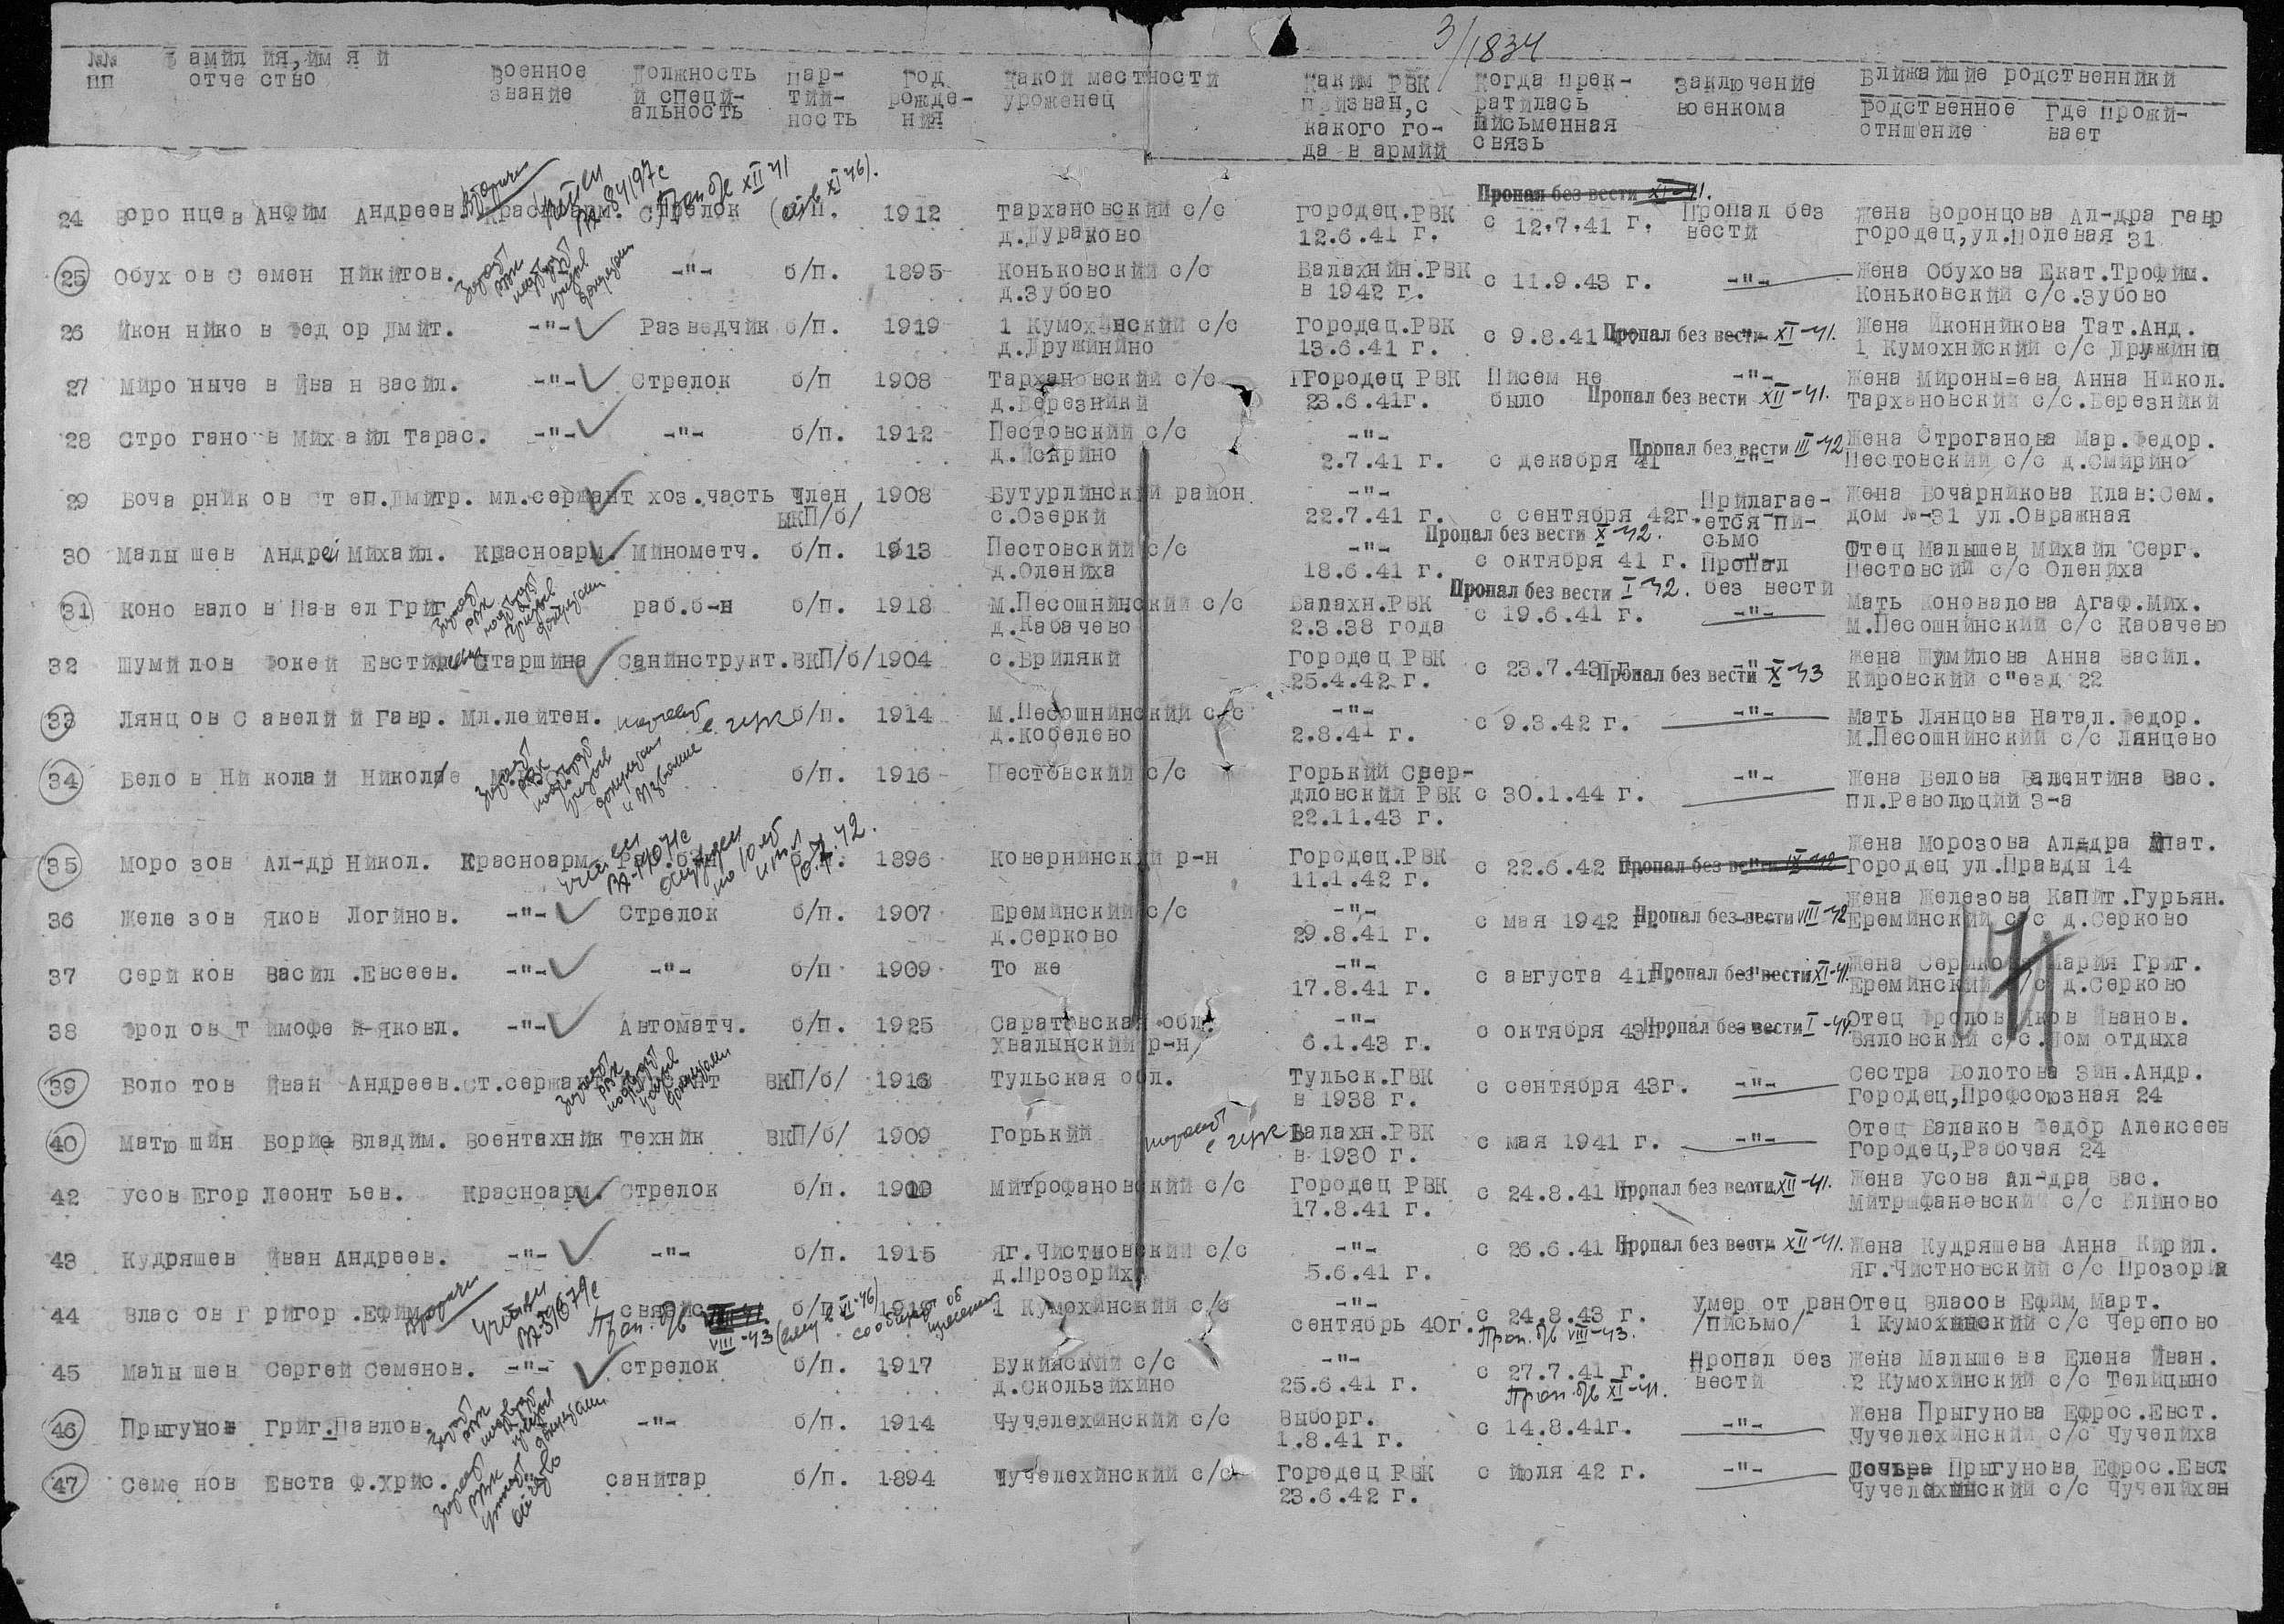 3/1834
№№ Фамилия, имя и Военное Должность Пар- Год Какой местности Каким РВК Когда прек- Заключение Ближайшие родственники
пп отчество звание и специ- тий- рожде- уроженец призван, с ратилась военкома Родственное Где прожи-
альность ность ния какого го- письменная отншение вает
да в армии связь
Пропал без вести XI-41.
24 Воронцев Анфим Андреев. Красноарм. Стрелок б/п. 1912 Тархановский с/с Городец.РВК с 12.7.41 г. Пропал без Жена Воронцова Ал-дра Гавр
д.Дураково 12.6.41 г. вести Городец,ул.Полевая 31
25 Обухов Семен Никитов. -"- б/п. 1895 Коньковский с/с Балахнин.РВК с 11.9.43 г. -"- Жена Обухова Екат.Трофим.
д.Зубово в 1942 г. Коньковский с/с.Зубово
26 Иконников Федор Дмит. -"- Разведчик б/п. 1919 1 Кумохинский с/с Городец.РВК с 9.8.41 Пропал без вести XI-41. Жена Иконникова Тат.Анд.
д.Дружинино 13.6.41 г. 1 Кумохнйский с/с Дружинин
27 Миронычев Иван Васил. -"- Стрелок б/п 1908 Тархановский с/с Городец РВК Писем не -"- Жена Мироны=ева Анна Никол.
д.Березники 23.6.41г. было Пропал без вести XII-41. Тархановский с/с.Березники
28 Строганов Михаил Тарас. -"- -"- б/п. 1912 Пестовский с/с -"- Пропал без вести III-42 Жена Строганова Мар.Федор.
д.Искрино 2.7.41 г. с декабря 41 -"- Пестовский с/с д.Смирино
29 Бочарников Степ.Дмитр. мл.сержант хоз.часть член 1908 Бутурлинский район -"- Прилагае- Жена Бочарникова Клав:Сем.
ВКП/б/ с.Озерки 22.7.41 г. с сентября 42г. ется пи- дом №-31 ул.Овражная
Пропал без вести X-42. сьмо
30 Малышев Андрей Михайл. Красноарм. Минометч. б/п. 1913 Пестовский с/с -"- с октября 41 г. Пропал Отец Малышев Михаил Серг.
д.Олениха 18.6.41 г. Пропал без вести I-42. без вести Пестовсий с/с Олениха
31 Коновалов Павел Григ раб.б-н б/п. 1918 М.Песошнинский с/с Балахн.РВК с 19.6.41 г. -"- Мать Коновалова Агаф.Мих.
д.Кабачево 2.3.38 года М.Песошнинский с/с Кабачево
32 Шумилов Фокей Евстифеев Старшина Санинструкт. ВКП/б/ 1904 с.Бриляки Городец РВК с 23.7.43 г. Пропал без вести X-43 Жена Шумилова Анна Васил.
25.4.42 г. Кировский с"езд 22
33 Лянцов Савелий Гавр. Мл.лейтен. б/п. 1914 М.Песошнинский с-с -"- с 9.3.42 г. -"- Мать Лянцова Натал.Федор.
д.Кобелево 2.8.41 г. М.Песошнинский с/с Лянцево
34 Белов Николай Николае б/п. 1916 Пестовский с/с Горький Свер- -"- Жена Белова Валентина Вас.
дловский РВК с 30.1.44 г. пл.Революции 3-а
22.11.43 г.
35 Морозов Ал-др Никол. Красноарм. 1896 Ковернинский р-н Городец.РВК с 22.6.42 Пропал без вести Жена Морозова Алдра Ипат.
11.1.42 г. Городец ул.Правды 14
36 Железов Яков Логинов. -"- Стрелок б/п. 1907 Ереминский с/с -"- с мая 1942 г. Пропал без вести VIII-42 Жена Железова Капит.Гурьян.
д.Серково 29.8.41 г. Ереминский с/с д.Серково
37 Сериков Васил.Евсеев. -"- -"- б/п 1909 То же -"- с августа 41г. Пропал без вести XI-41. Жена Серикова Мария Григ.
17.8.41 г. Ереминский с/с д.Серково
38 Фролов Тимофей Яковл. -"- Автоматч. б/п. 1925 Саратовская обл. -"- с октября 43 г. Пропал без вести I-44. Отец Фролов Яков Иванов.
Хвалынский р-н 6.1.43 г. Вяловский с/с.Дом отдыха
39 Болотов Иван Андреев. ст.сержа ВКП/б/ 1918 Тульская обл. Тульск.ГВК с сентября 43г. -"- Сестра Болотова Зин.Андр.
в 1938 г. Городец,Профсоюзная 24
40 Матюшин Борис Владим. Воентахник техник ВКП/б/ 1909 Горький Балахн.РВК с мая 1941 г. -"- Отец Балаков Федор Алексеев
в 1930 г. Городец,Рабочая 24
42 Усов Егор Леонтьев. Красноарм. Стрелок б/п. 1900 Митрофановский с/с Городец РВК с 24.8.41 Пропал без вести XII-41. Жена Усова Ал-дра Вас.
17.8.41 г. Митрофановский с/с Блиново
43 Кудряшев Иван Андреев. -"- -"- б/п. 1915 Яг.Чистновский с/с -"- с 26.6.41 г. Пропал без вести XII-41. Жена Кудряшева Анна Кирил.
д.Прозориха 5.6.41 г. Яг.Чистновский с/с Прозориа
44 Власов Григор.Ефим связис б/п 1 Кумохинский с/с -"- с 24.8.43 г. Умер от ран Отец Власов Ефим Март.
VIII-43 сентябрь 40г. Проп. б/в VIII-43. /письмо/ 1 Кумохинский с/с Черепово
45 Малышев Сергей Семенов. -"- стрелок б/п. 1917 Букинский с/с -"- с 27.7.41 г. Пропал без Жена Малышева Елена Иван.
д.Скользихино 25.6.41 г. Проп. б/в XI-41. вести 2 Кумохинский с/с Телицыно
46 Прыгунов Григ.Павлов. -"- б/п. 1914 Чучелехинский с/с Выборг. с 14.8.41г. -"- Жена Прыгунова Ефрос.Евст.
1.8.41 г. Чучелехинский с/с Чучелиха
47 Семенов Евстаф.Хрис. санитар б/п. 1894 Чучелехинский с/с Городец РВК с июля 42 г. -"- Дочьра Прыгунова Ефрос.Евст
23.6.42 г. Чучелехинский с/с Чучелихан